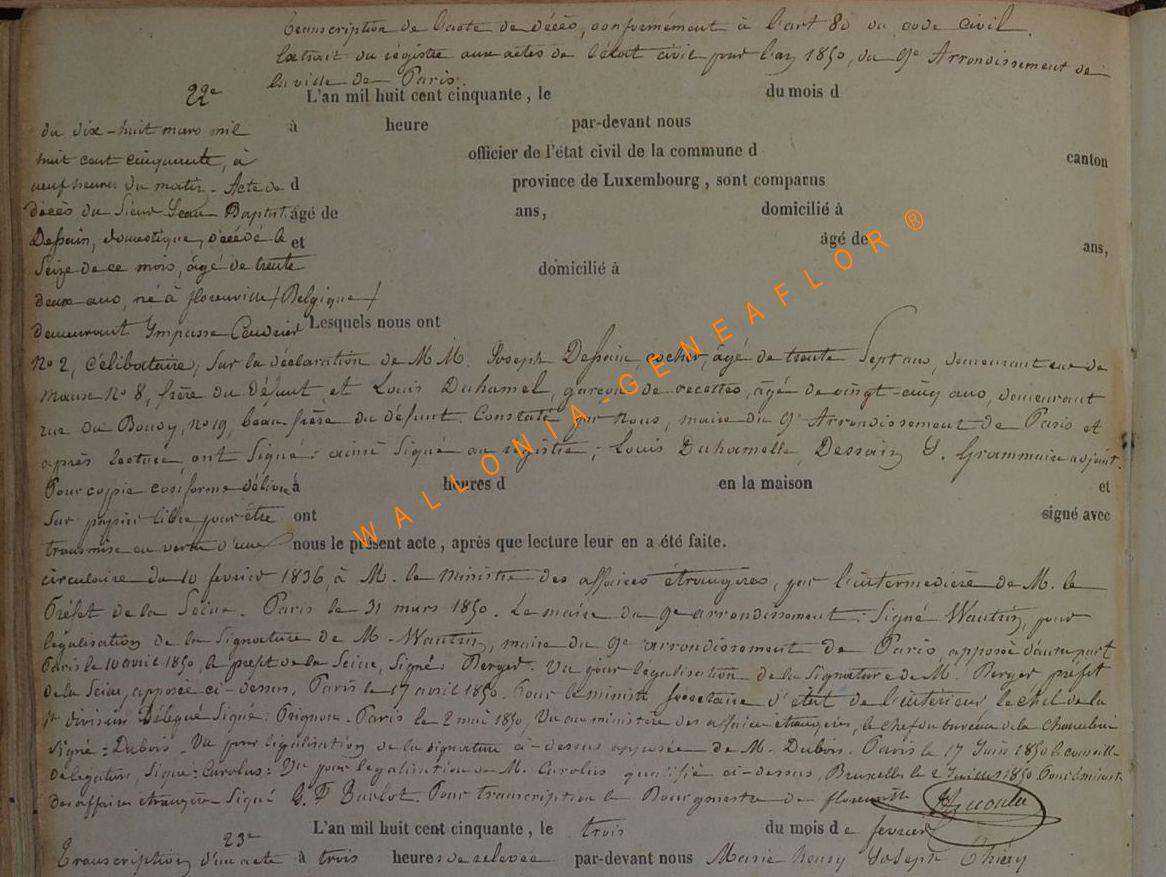 Transcription de l'acte de décès, conformément à l'art 80 du code civil.
Extrait du régistre aux actes de l'état civil pour l'an 1850, du 9e Arrondissement de
la ville de Paris.
22e L'an mil huit cent cinquante, le du mois d
du dix-huit mars mil à heure par-devant nous
huit cent cinquante, à officier de l'état civil de la commune d canton
neuf heures du matin. Acte de d province de Luxembourg, sont comparus
décès du Sieur Jean Baptist. âgé de ans, domicilié à
Dessain, domestique, décédé le et âgé de ans,
Seize de ce mois, âgé de trente domicilié à
deux ans, né à florenville (Belgique)
demeurant Impasse Lesquels nous ont
No 2, célibataire, Sur la déclaration de M M. Joseph Dessain, cocher, âgé de trente Sept ans, demeurant rue de
No 8, frère du défunt, et Louis Duhamel, garçon de recettes, âgé de vingt-cinq ans, demeurant
rue du no 19, beau frère du défunt. Constaté par Nous, maire du 9e Arrondissement de Paris et
après lecture ont Signé: ainsi Signé au registre; Louis Duhamelle, Dessain, Grammaire adjoint.
Pour copie conforme délivré à heures d en la maison et
Sur papier libre pour être ont signé avec
transmise en vertu d'une nous le présent acte, après que lecture leur en a été faite.
circulaire du 10 fevrier 1836, à M. le Ministre des affaires étrangères, par l'intermedière de M. le
Préfet de la Seine. Paris le 31 mars 1850. Le maire du 9e arrondissement: Signé Wautrin, pour
légalisation de la Signature de M. Wautrin, maire du 9e arrondissement de Paris, apposée d'autre part
Paris le 10 avril 1850, le prefet de la Seine, Signé: Berger. Vu pour légalisation de la Signature de M. Berger préfet
de la Seine, apposée ci-dessus, Paris le 17 avril 1850. Pour le ministre Sécretaire d'état de l'intérieur le chef de la
division Délégué Signé: Paris le 2 mai 1850, Vu au ministère des affaires étrangères, le chef du bureau de la Chancellerie
Signé: Dubois. Vu pour légalisation de la signature ci-dessus apposée de M. Dubois. Paris le 17 Juin 1850 le conseiller
de légation, Signé: Carolus: Vu pour légalisation de M. Carolus qualifié ci-dessus, Bruxelles le 2 1850 Pour le ministre
des affaires étrangères Signé Pour transcription le Bourgmestre de florenville
23e L'an mil huit cent cinquante, le trois du mois de fevrier
Transcription d'un acte à trois heures de relevée par-devant nous Marie Henry Joseph Thiéry
WALLONIA-GENEAFLOR®